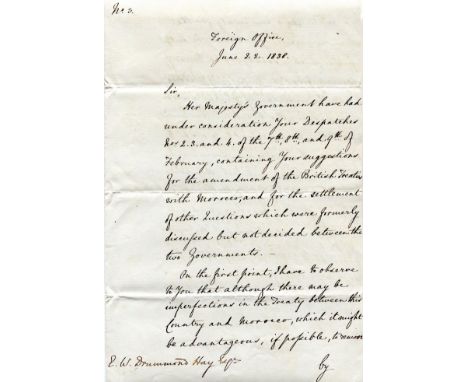 No 3.
Foreign Office,
June 22. 1838.
Sir,
Her Majesty's Government have had
under consideration Your Despatches
Nos 2. 3. and 6. of the 7th, 8th, and 9th of
February, containing Your suggestions
for the amendment of the British Treaties
with Morocco, and for the settlement
of other Questions which were formerly
discussed but not decided between the
two Governments. —
On the first point, I have to observe
to You that although there may be
imperfections in the Treaty between this
Country and Morocco, which it might
be advantageous, if possible, to remove
E. W. Drummond Hay Esqre
by